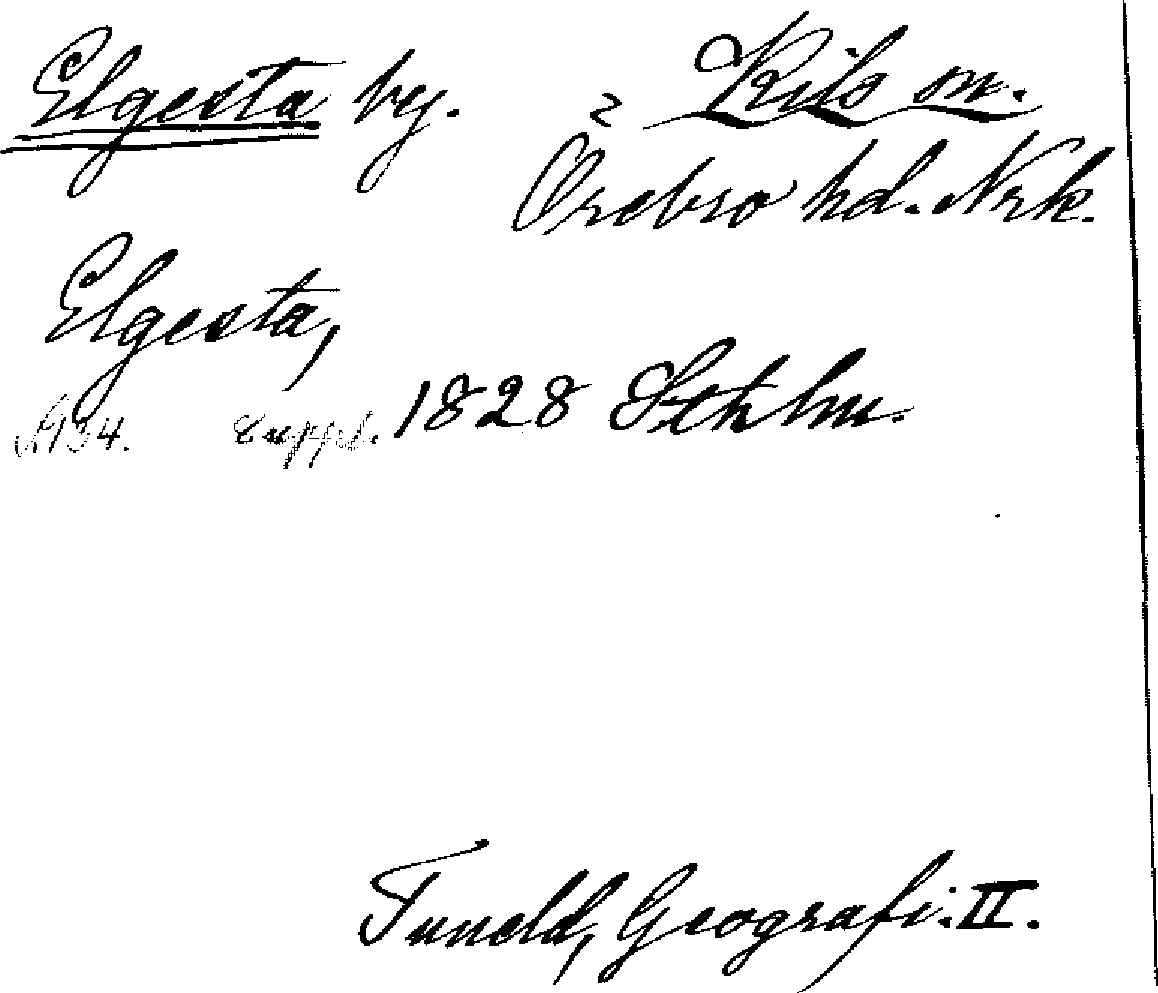 Elgesta by. 2 Kils sn.
Örebro hd. Nrk.
Elgesta,
S. 134. Suppl. 1828 Sthlm.
Tuneld, Geografi. II.